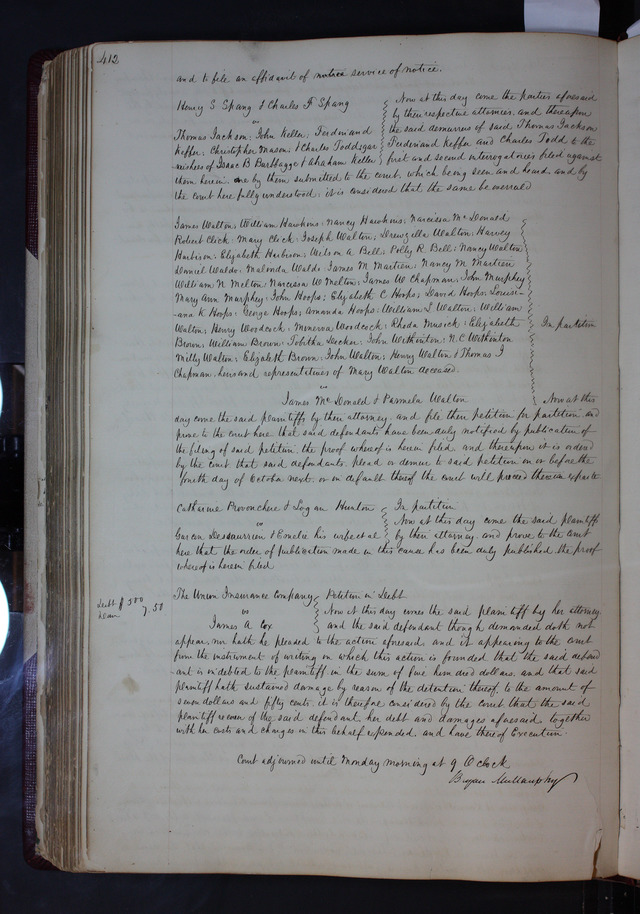 412
and to file an affidavit of notice service of notice.
Henry S Spang & Charles F Spang
vs
Thomas Jackson; John Keller, Ferdinand
Keffer; Christopher Mason; & Charles Todd &gar
nishees of Isaac B Burbbage & Abaham Keller
Now at this day come the parties aforesaid
by their respective attornies, and thereupon
the said demurrers of said Thomas Jackson
Ferdinand Keffer and Charles Todd to the
first and second interrogatories filed against
them herein are by them submitted to the court, which being seen and heard, and by
the court here fully understood; it is considered that the same be overruled
James Walton; William Hawkins; Nancy Hawkins; Narcissa McDonald
Robert Click; Mary Click; Joseph Walton; Drewzilla Walton; Harvey
Harbison; Elizabeth Harbison; Nelson A Bell; Polly R. Bell; Nancy Walton
Daniel Waldo; Malonda Waldo James M Martien; Nancy M Martien
William N Melton; Narcissa W Melton; James W Chapman; John Murphey
Mary Ann Murphey; John Hoops; Elizabeth C Hoops; David Hoops; Louisi-
ana K. Hoops; George Hoops; Amanda Hoops; William L Walton; William
Walton; Henry Woodcock; Minerva Woodcock; Rhoda Musick; Elizabeth
Brown; William Brown; Tobitha Decker; John Withinton; N. C. Withinton
Milly Walton; Elizabeth Brown; John Walton; Henry Walton & Thomas J
Chapman heirs and representatives of Mary Walton deceased.
In partition
vs
James McDonald & Parmela Walton
Now at this
day come the said plaintiffs by their attorney and file their petition for partition and
prove to the court here that said defendants have been duly notified by publication of
the filing of said petition the proof whereof is herein filed, and thereupon it is ordered
by the court that said defendants plead or demur to said petition on or before the
fourth day of October next. or in default thereof the court will proceed therein exparte
Catharine Provonchere & Logan Hunton
vs
Garcon Dessaurrien & Emelie his wife et al
In partition
Now at this day come the said plaintiffs
by their attorney and prove to the court
here that the order of publication made in this cause has been duly published the proof
whereof is herein filed
Debt $500
Dam 7.50
The Union Insurance Company
vs
James A Cox
Petition in Debt
Now at this day comes the said plaintiff by her attorney
and the said defendant though demanded doth not
appear, nor hath he pleaded to the action aforesaid; and it appearing to the court
from the instrument of writing on which this action is founded that the said defend
ant is indebted to the plaintiff in the sum of five hundred dollars, and that said
plaintiff hath sustained damage by reason of the detention thereof, to the amount of
seven dollars and fifty cents. it is therefore considered by the court that the said
plaintiff recover of the said defendant her debt and damages aforesaid together
with her costs and charges in this behalf expended, and have thereof Execution.
Court adjourned until Monday morning at 9 O clock
Bryan Mullanphy